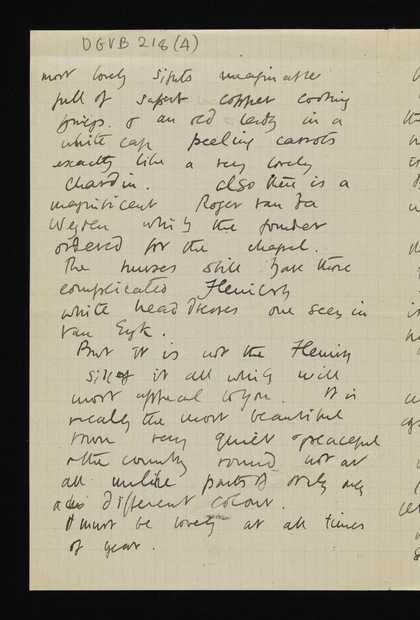 DGVB 218 (4)
most lovely sights imaginable
full of superb copper cooking
things & an old lady in a
white cap peeling carrots
exactly like a very lovely
Chardin. Also there is a
magnificent Roger van da
Weyden which the founder
ordered for the chapel.
The nurses still have those
complicated Flemish
white headdresses one sees in
van Eyk.
But it is not the Flemish
side of it all which will
most appeal to you. It is
really the most beautiful
town very quiet & peaceful
& the country round not at
all unlike parts of Italy only
a different colour.
It must be lovely at all times
of year.